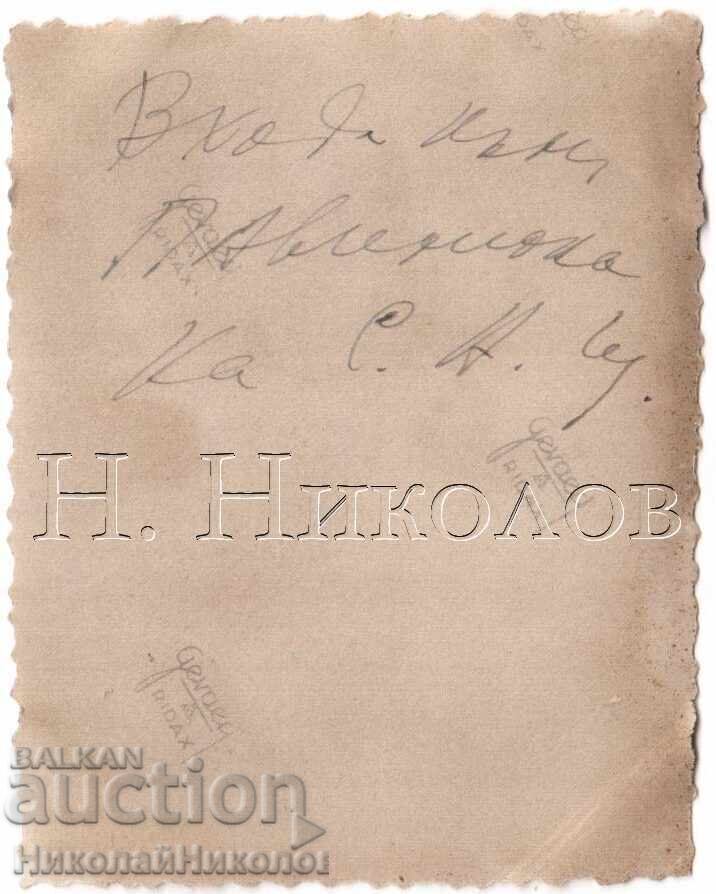 Входа към
Павилиона
на С. Н. Ч.
Gevaert
RIDAX
Gevaert
RIDAX
Н. Николов
Gevaert
RIDAX
BALKAN
auction
НиколайНиколов